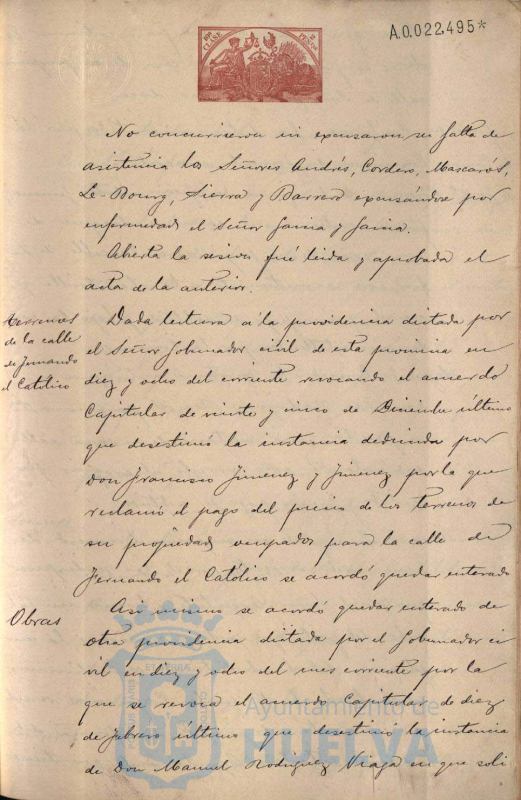 A.0.022.495*
10ª CLASE 2 PESETAS
No concurrieron ni excusaron su falta de
asistencia los Señores Andrés, Cordero, Mascarós,
Le-Bourg, Sierra y Barrero excusándose por
enfermedad el Señor Garcia y Garcia.
Abierta la sesion fué leida y aprobada el
acta de la anterior.
Terrenos
de la calle
de Fernando
el Católico
Dada lectura á la providencia dictada por
el Señor Gobernador civil de esta provincia en
diez y ocho del corriente revocando el acuerdo
Capitular de veinte y cinco de Diciembre último
que desestimó la instancia deducida por
Don Francisco Jimenez y Jimenez por la que
reclamó el pago del precio de los terrenos de
su propiedad ocupados para la calle de
Fernando el Católico se acordó quedar enterado
Obras
Asi mismo se acordó quedar enterado de
otra providencia dictada por el Gobernador ci
vil en diez y ocho del mes corriente por la
que se revoca el acuerdo Capitular de diez
de febrero último que desestimó la instancia
de Don Manuel Rodriguez Viaga en que soli
Ayuntamiento de
HUELVA